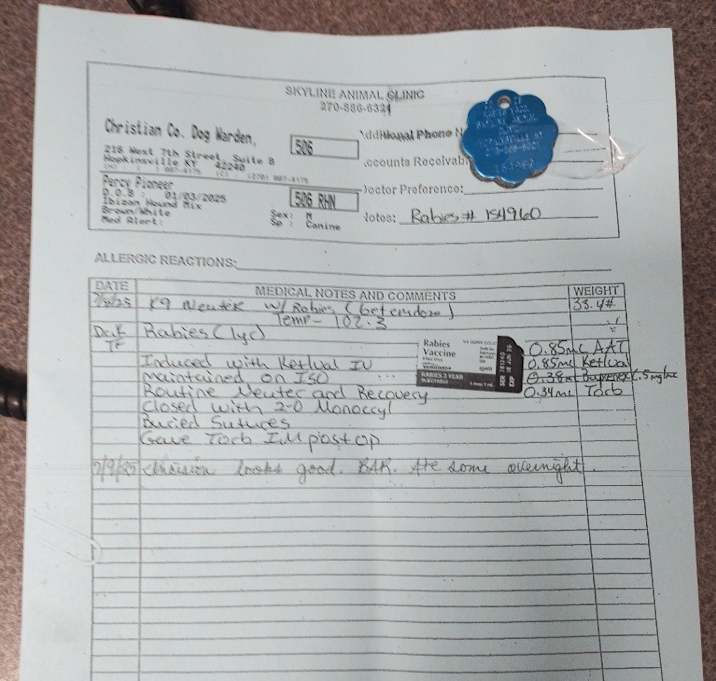 SKYLINE ANIMAL CLINIC
270-886-6321
Christian Co. Dog Warden,
506
Additional Phone N
218 West 7th Street, Suite B
Hopkinsville KY 42240
Accounts Receivabl
Percy Pioneer
D.O.B : 01/03/2025
506 RHN
Doctor Preference:
Ibizan Hound Mix
Brown/White
Sex: M
Med Alert:
Sp : Canine
Notes: Rabies # 154960
ALLERGIC REACTIONS:
DATE MEDICAL NOTES AND COMMENTS WEIGHT
K9 Neuter w/ Rabies 33.4#
Temp - 102.3
Rabies (1yr)
Rabies
Vaccine
RABIES 3 YEAR
0.85mL
Induced with Ketlval IV
0.85mL Ketlval
maintained on ISO
Routine Neuter and Recovery
0.34mL Torb
Closed with 2-0 Monocryl
Buried Sutures
Gave Torb IM post op
7/9/25 Incision looks good. BAR. Ate some overnight.